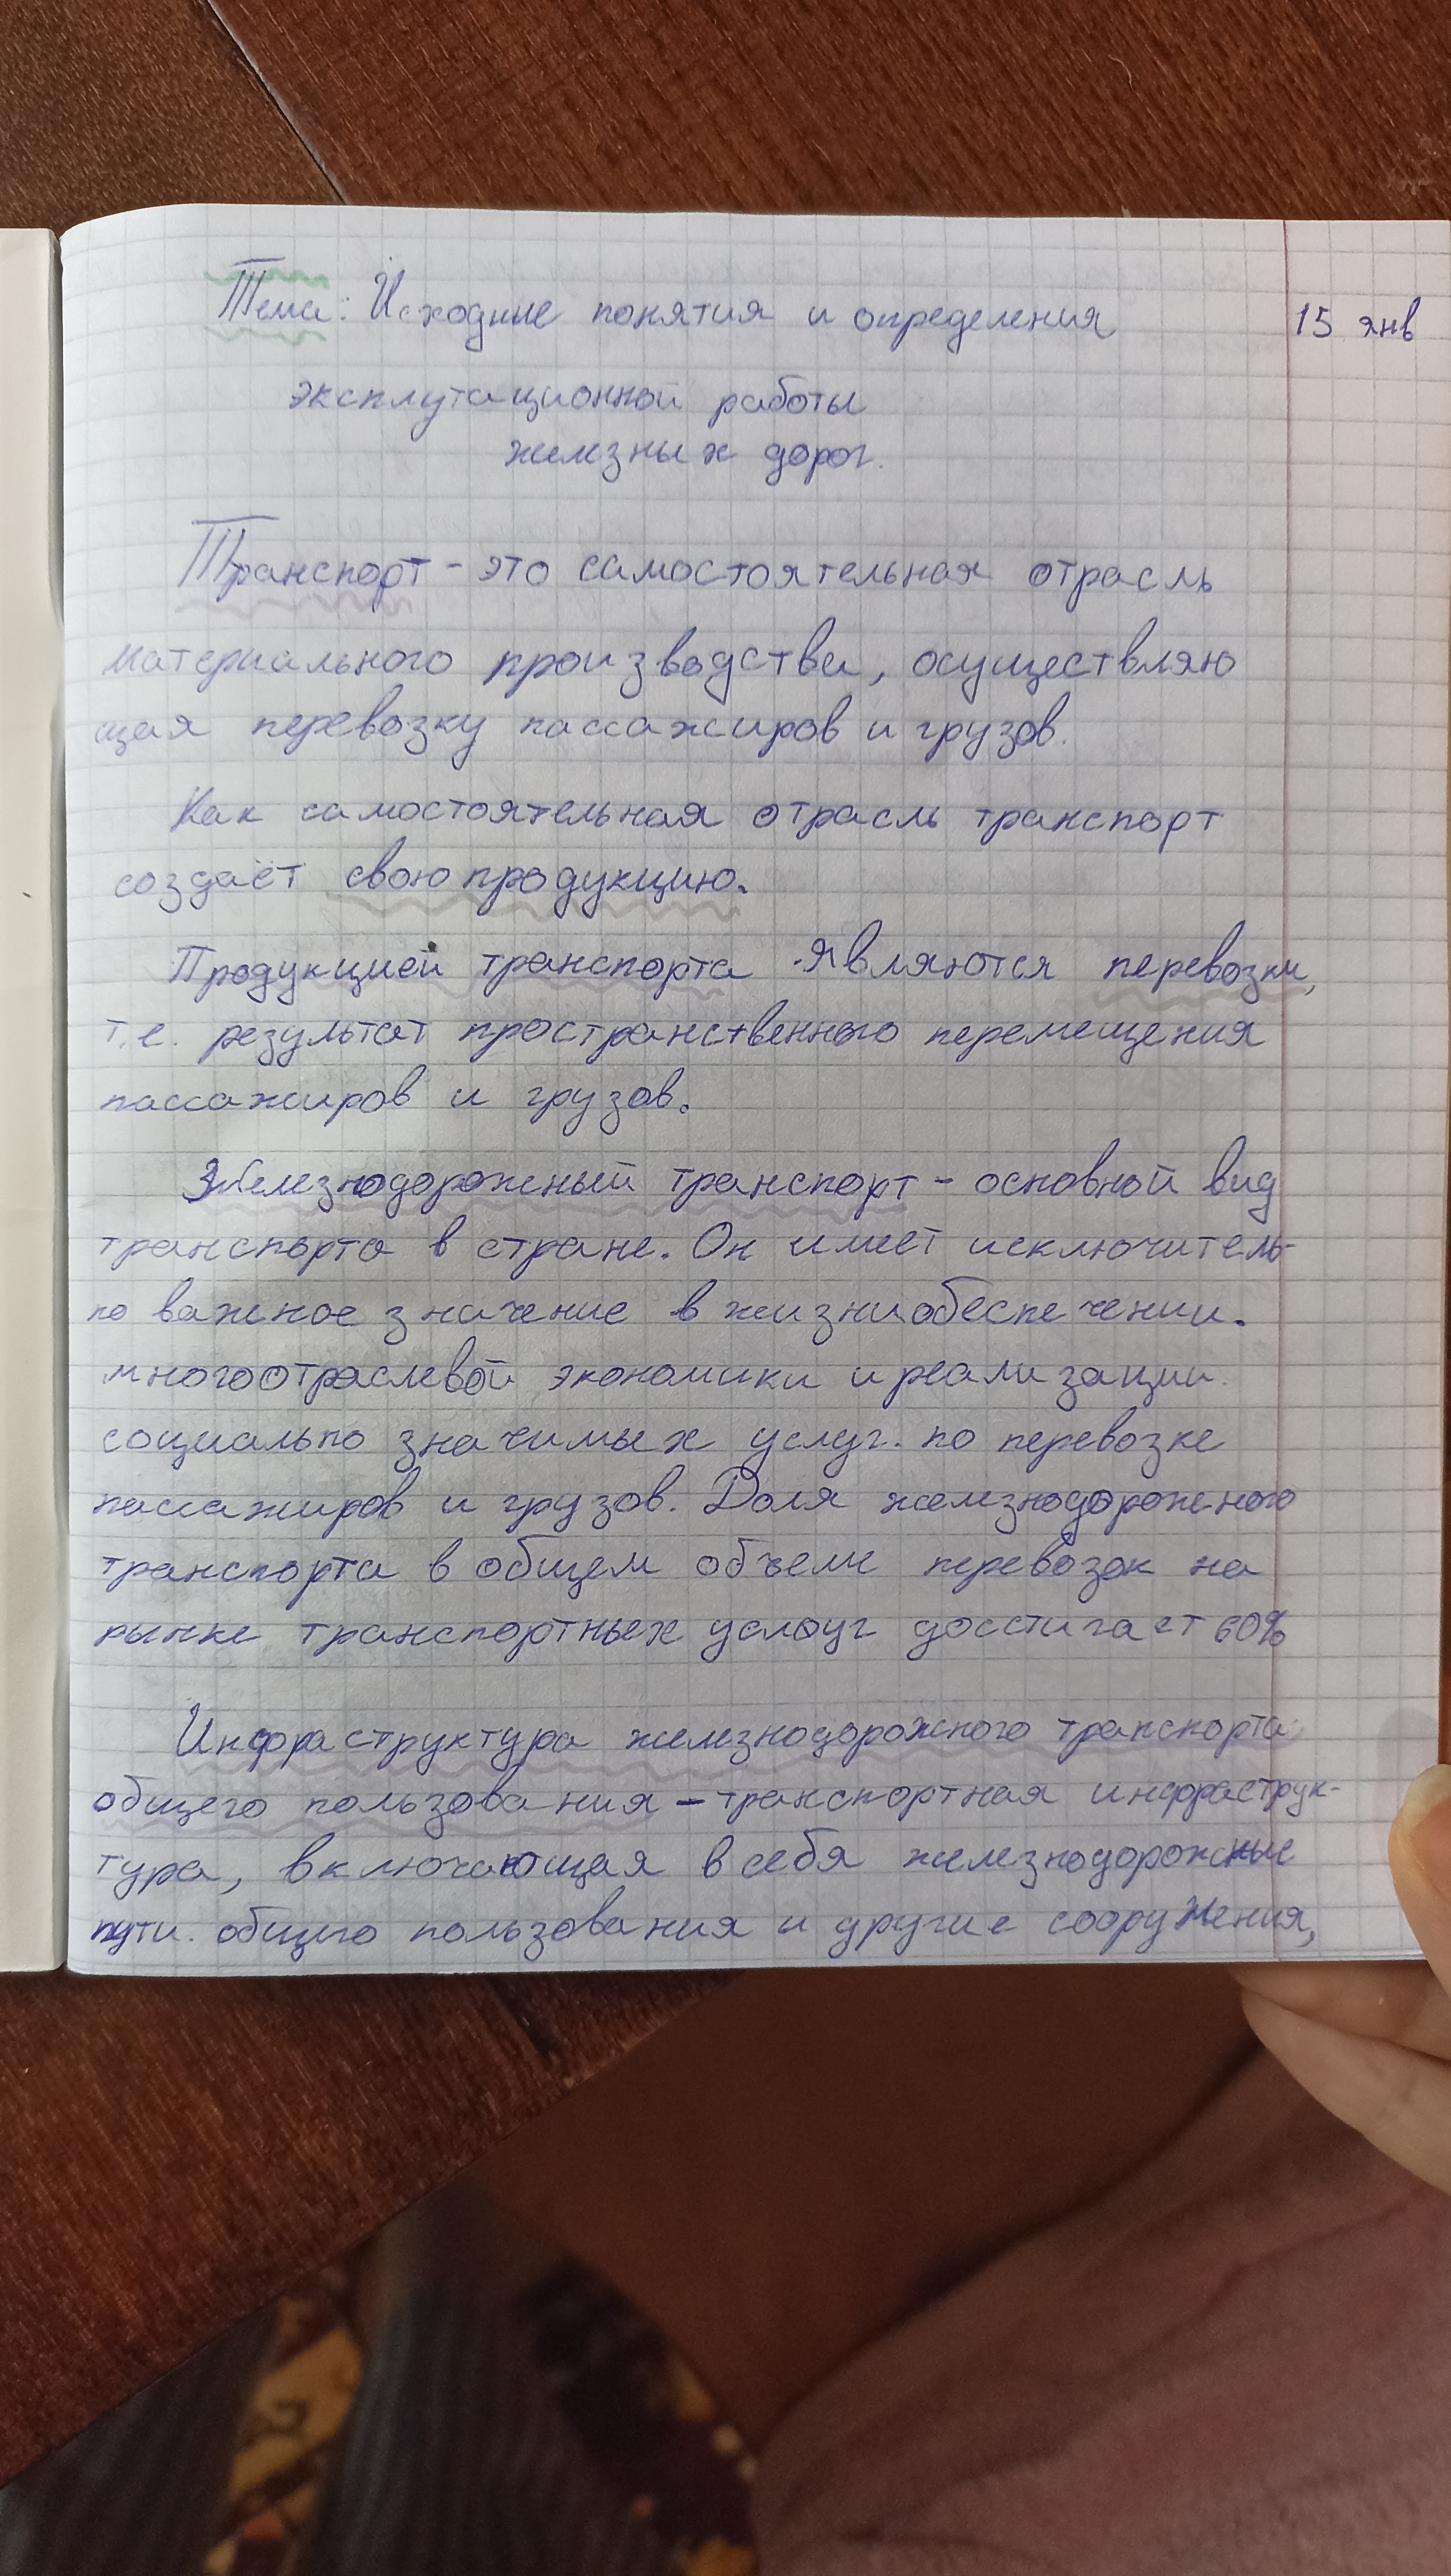 Тема: Исходные понятия и определения
15 янв
эксплутационной работы
железных дорог.
Транспорт - это самостоятельная отрасль
материального производства, осуществляю
щая перевозку пассажиров и грузов.
Как самостоятельная отрасль транспорт
создаёт свою продукцию.
Продукцией транспорта являются перевозки,
т.е. результат пространственного перемещения
пассажиров и грузов.
Железнодорожный транспорт - основной вид
транспорта в стране. Он имеет исключитель-
но важное значение в жизниобеспечении.
многоотраслевой экономики и реализации.
социально значимых услуг. по перевозке
пассажиров и грузов. Доля железнодорожного
транспорта в общем объеме перевозок на
рынке транспортных услуг досстигает 60%
Инфраструктура железнодорожного транспорта
общего пользования - транспортная инфраструк-
тура, включающая в себя железнодорожные
пути. общего пользования и другие сооружения,